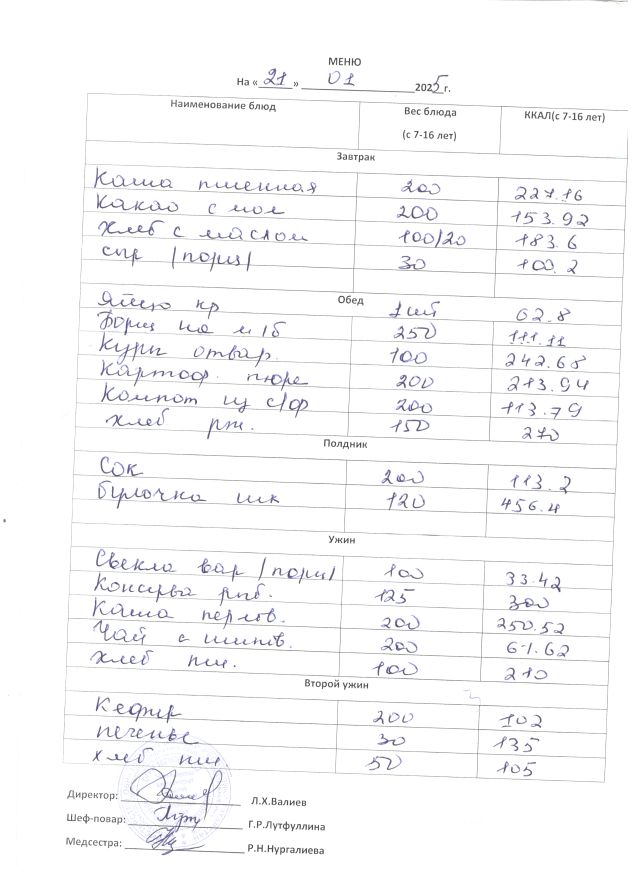 МЕНЮ
На «21» 01 2025г.
Наименование блюд Вес блюда (с 7-16 лет) ККАЛ(с 7-16 лет)
Завтрак
Каша пшенная 200 227.16
Какао с мол 200 153.92
Хлеб с маслом 100/20 183.6
сыр /порц/ 30 100.2
Обед
Яйцо кр 1шт 62.8
Борщ на м/б 250 111.11
Куры отвар. 100 242.68
Картоф. пюре 200 213.94
Компот из с/ф 200 113.79
хлеб рж. 150 270
Полдник
Сок 200 113.2
булочка шк 120 456.4
Ужин
Свекла вар /порц/ 100 33.42
Консерва рыб. 125 300
Каша перлов. 200 250.52
Чай с шипов. 200 61.62
хлеб пш. 100 210
Второй ужин
Кефир 200 102
печенье 30 135
хлеб пш. 50 105
Директор: Л.Х.Валиев
Шеф-повар: Г.Р.Лутфуллина
Медсестра: Р.Н.Нургалиева